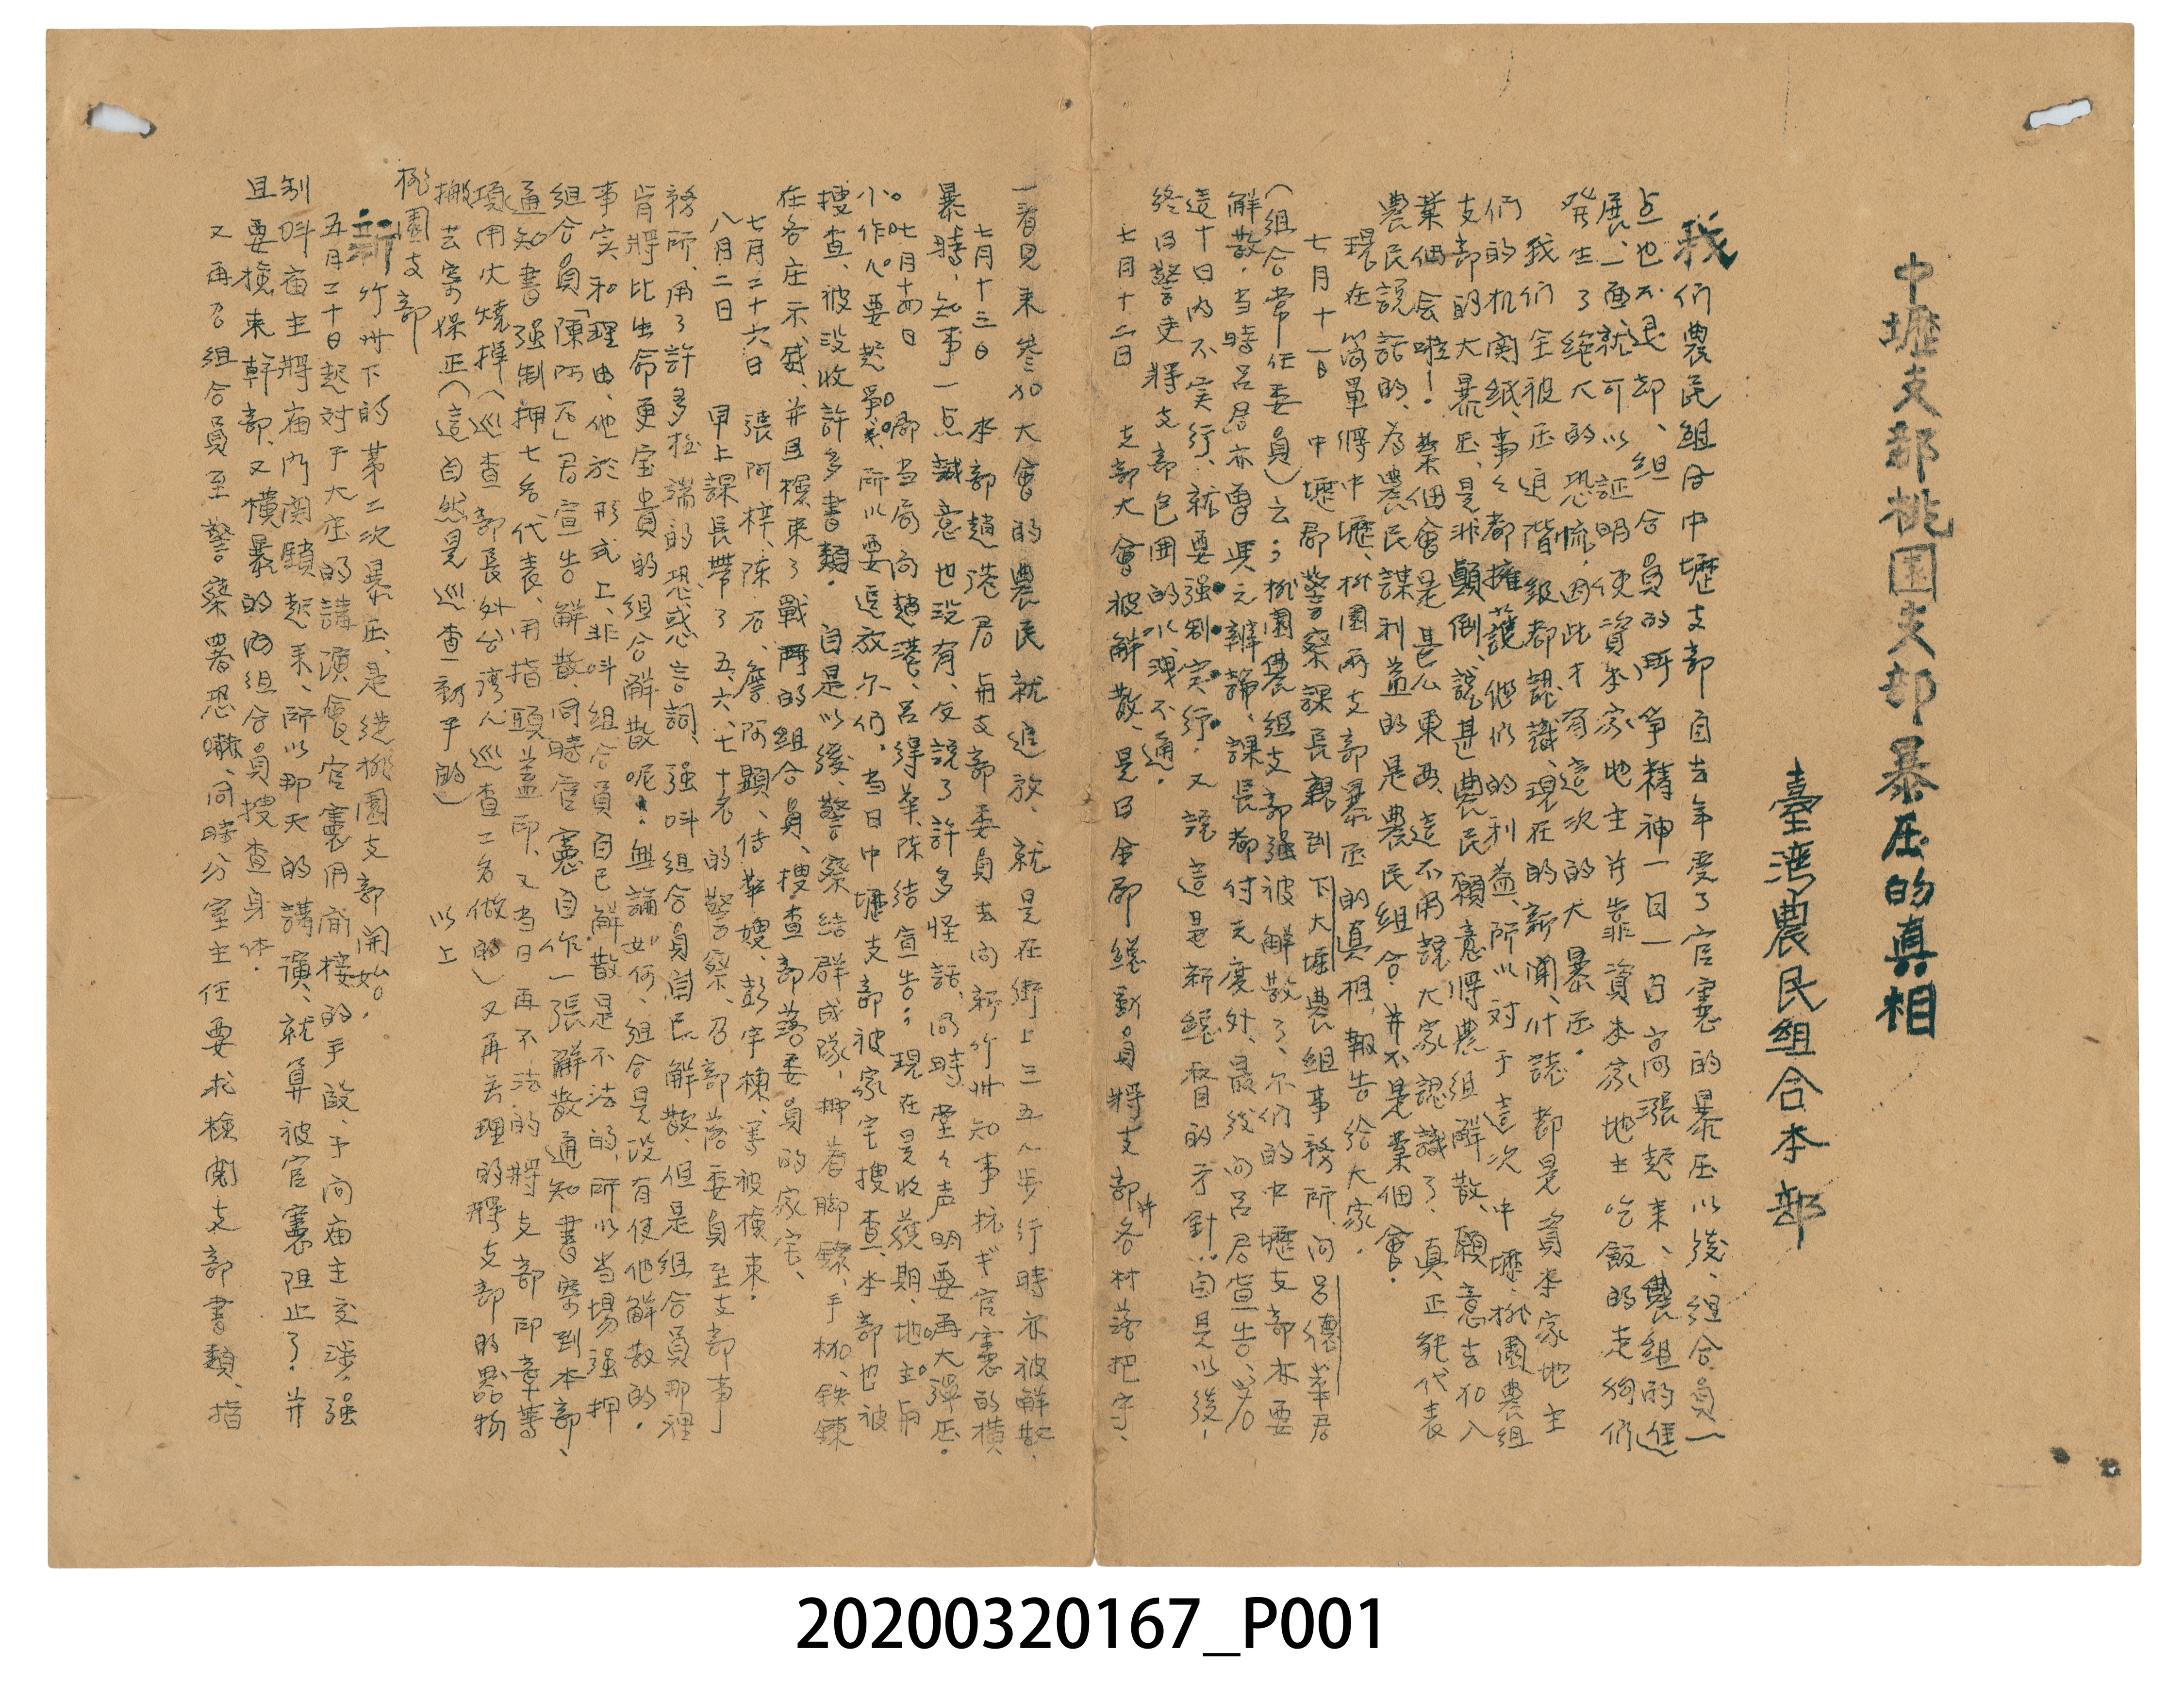 中壢支部桃園支部暴压的真相
臺湾農民組合本部
我們農民組合中壢支部自去年受了官憲的暴压以後、組合員一
点也不退却、組合員的斗争精神一日一日高漲起来、農組的進
展、一面就可以証明、使資本家地主并靠資本家地主吃飯的走狗們
発生了絶大的恐慌、因此才有這次的大暴压。
我們全被压迫階級都認識、現在的新聞、什誌都是資本家地主
們的机関紙、事々都擁護他們的利益、所以対于這次中壢、桃園農組
支部的大暴压、是非顛倒、說甚農民願意將農組解散、願意去加入
業佃会啦！業佃會是甚么東西、這不用說大家認識了、真正能代表
農民說話的、為農民謀利益的是農民組合、并不是業佃會。
現在簡單將中壢、桃園兩支部暴压的真相、報告給大家。
七月十一日　中壢郡警察課長親到下大堀農組事務所、向呂德華君
（組合常任委員）云；桃園農組支部强被解散了、尓們的中壢支部亦要
解散。当時呂君亦曾與之辯論、課長都付之度外、最後向呂君宣告、
這十日内不実行、就要强制実行。又說這是新総督的方針、自是以後、
終日警吏將支部包囲的水洩不通。
七月十二日　支部大會被解散、是日全郡総動員將支部并各村落把守、
一看見来參加大會的農民就追放、就是在街上三五人步行時亦被解散、
七月十三日　本部趙港君、與支部委員去向新竹州知事抗ギ官憲的横
暴時、知事一点誠意也没有、反說了許多怪話、同時堂々声明要再大弾压。
七月十四日　郡当局向趙港、呂得華、陳结宣告；現在是收獲期、地主與
小作人要起爭ギ、所以要追放尓們。当日中壢支部被家宅搜查、本部也被
搜查、被没收許多書類。自是以後、警察結群成隊、押着脚鐐、手枷、鉄鍊
在各庄示威、并且檢束了戰鬥的組合員、搜查部落委員的家宅、
七月二十六日　張阿梓、陳石、詹阿顕、侍華嫂、彭宇棟、等被檢束。
八月二日　早上課長帶了五、六、七十名的警察、召部落委員至支部事
務所、用了許多極端的恐惑言詞、强叫組合員簡辰解散、但是組合員那裡
肯將比生命更宝貴的組合解散呢！無論如何、組合是没有使他解散的。
事实和理由、他於形式上、非叫組合員自己解散是不法的、所以当場强押
組合員「陳阿石」君宣告解散、同時官憲自作一張解散通知書寄到本部、
通知書强制押七名代表、用指頭盖印、又当日再不法的將支部印章等
項用火燒掉（巡查部長外台湾人巡查二名做的）又再無理的將支部的器物
搬去寄保正（這自然是巡查動手的）　以上
桃園支部
新竹州下的第二次暴压、是從桃園支部開始。
五月二十日起対于大庄的講演會、官憲用間接的手段、于向庙主交涉、强
制叫庙主將庙門関鎖起来、所以那天的講演、就算被官憲阻止了。并
且要檢束幹部、又横暴的向組合員搜查身体。
又再召組合員至警察署恐嚇、同時分室主任要求檢閲支部書類、指
20200320167_P001